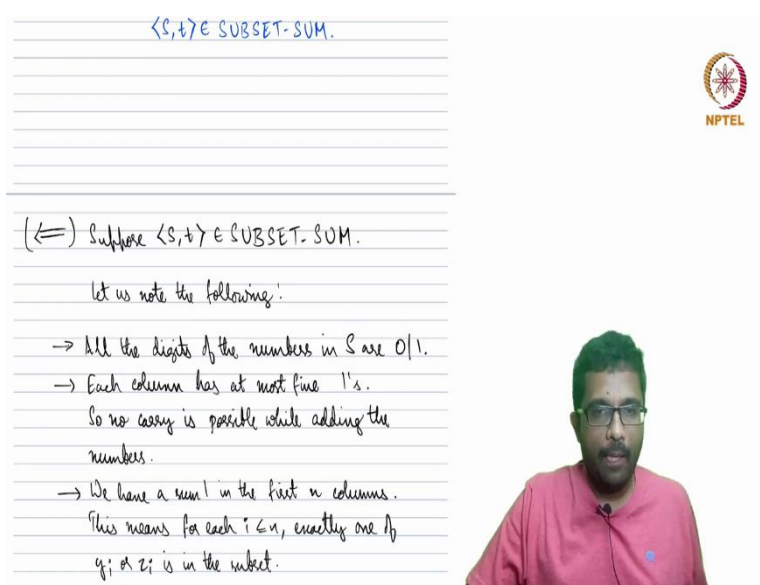 <S,t> ∈ SUBSET-SUM.
NPTEL
(⇐) Suppose <S,t> ∈ SUBSET-SUM.
Let us note the following:
→ All the digits of the numbers in S are 0/1.
→ Each column has at most five 1's.
So no carry is possible while adding the
numbers.
→ We have a sum 1 in the first n columns.
This means for each i ≤ n, exactly one of
yi or zi is in the subset.